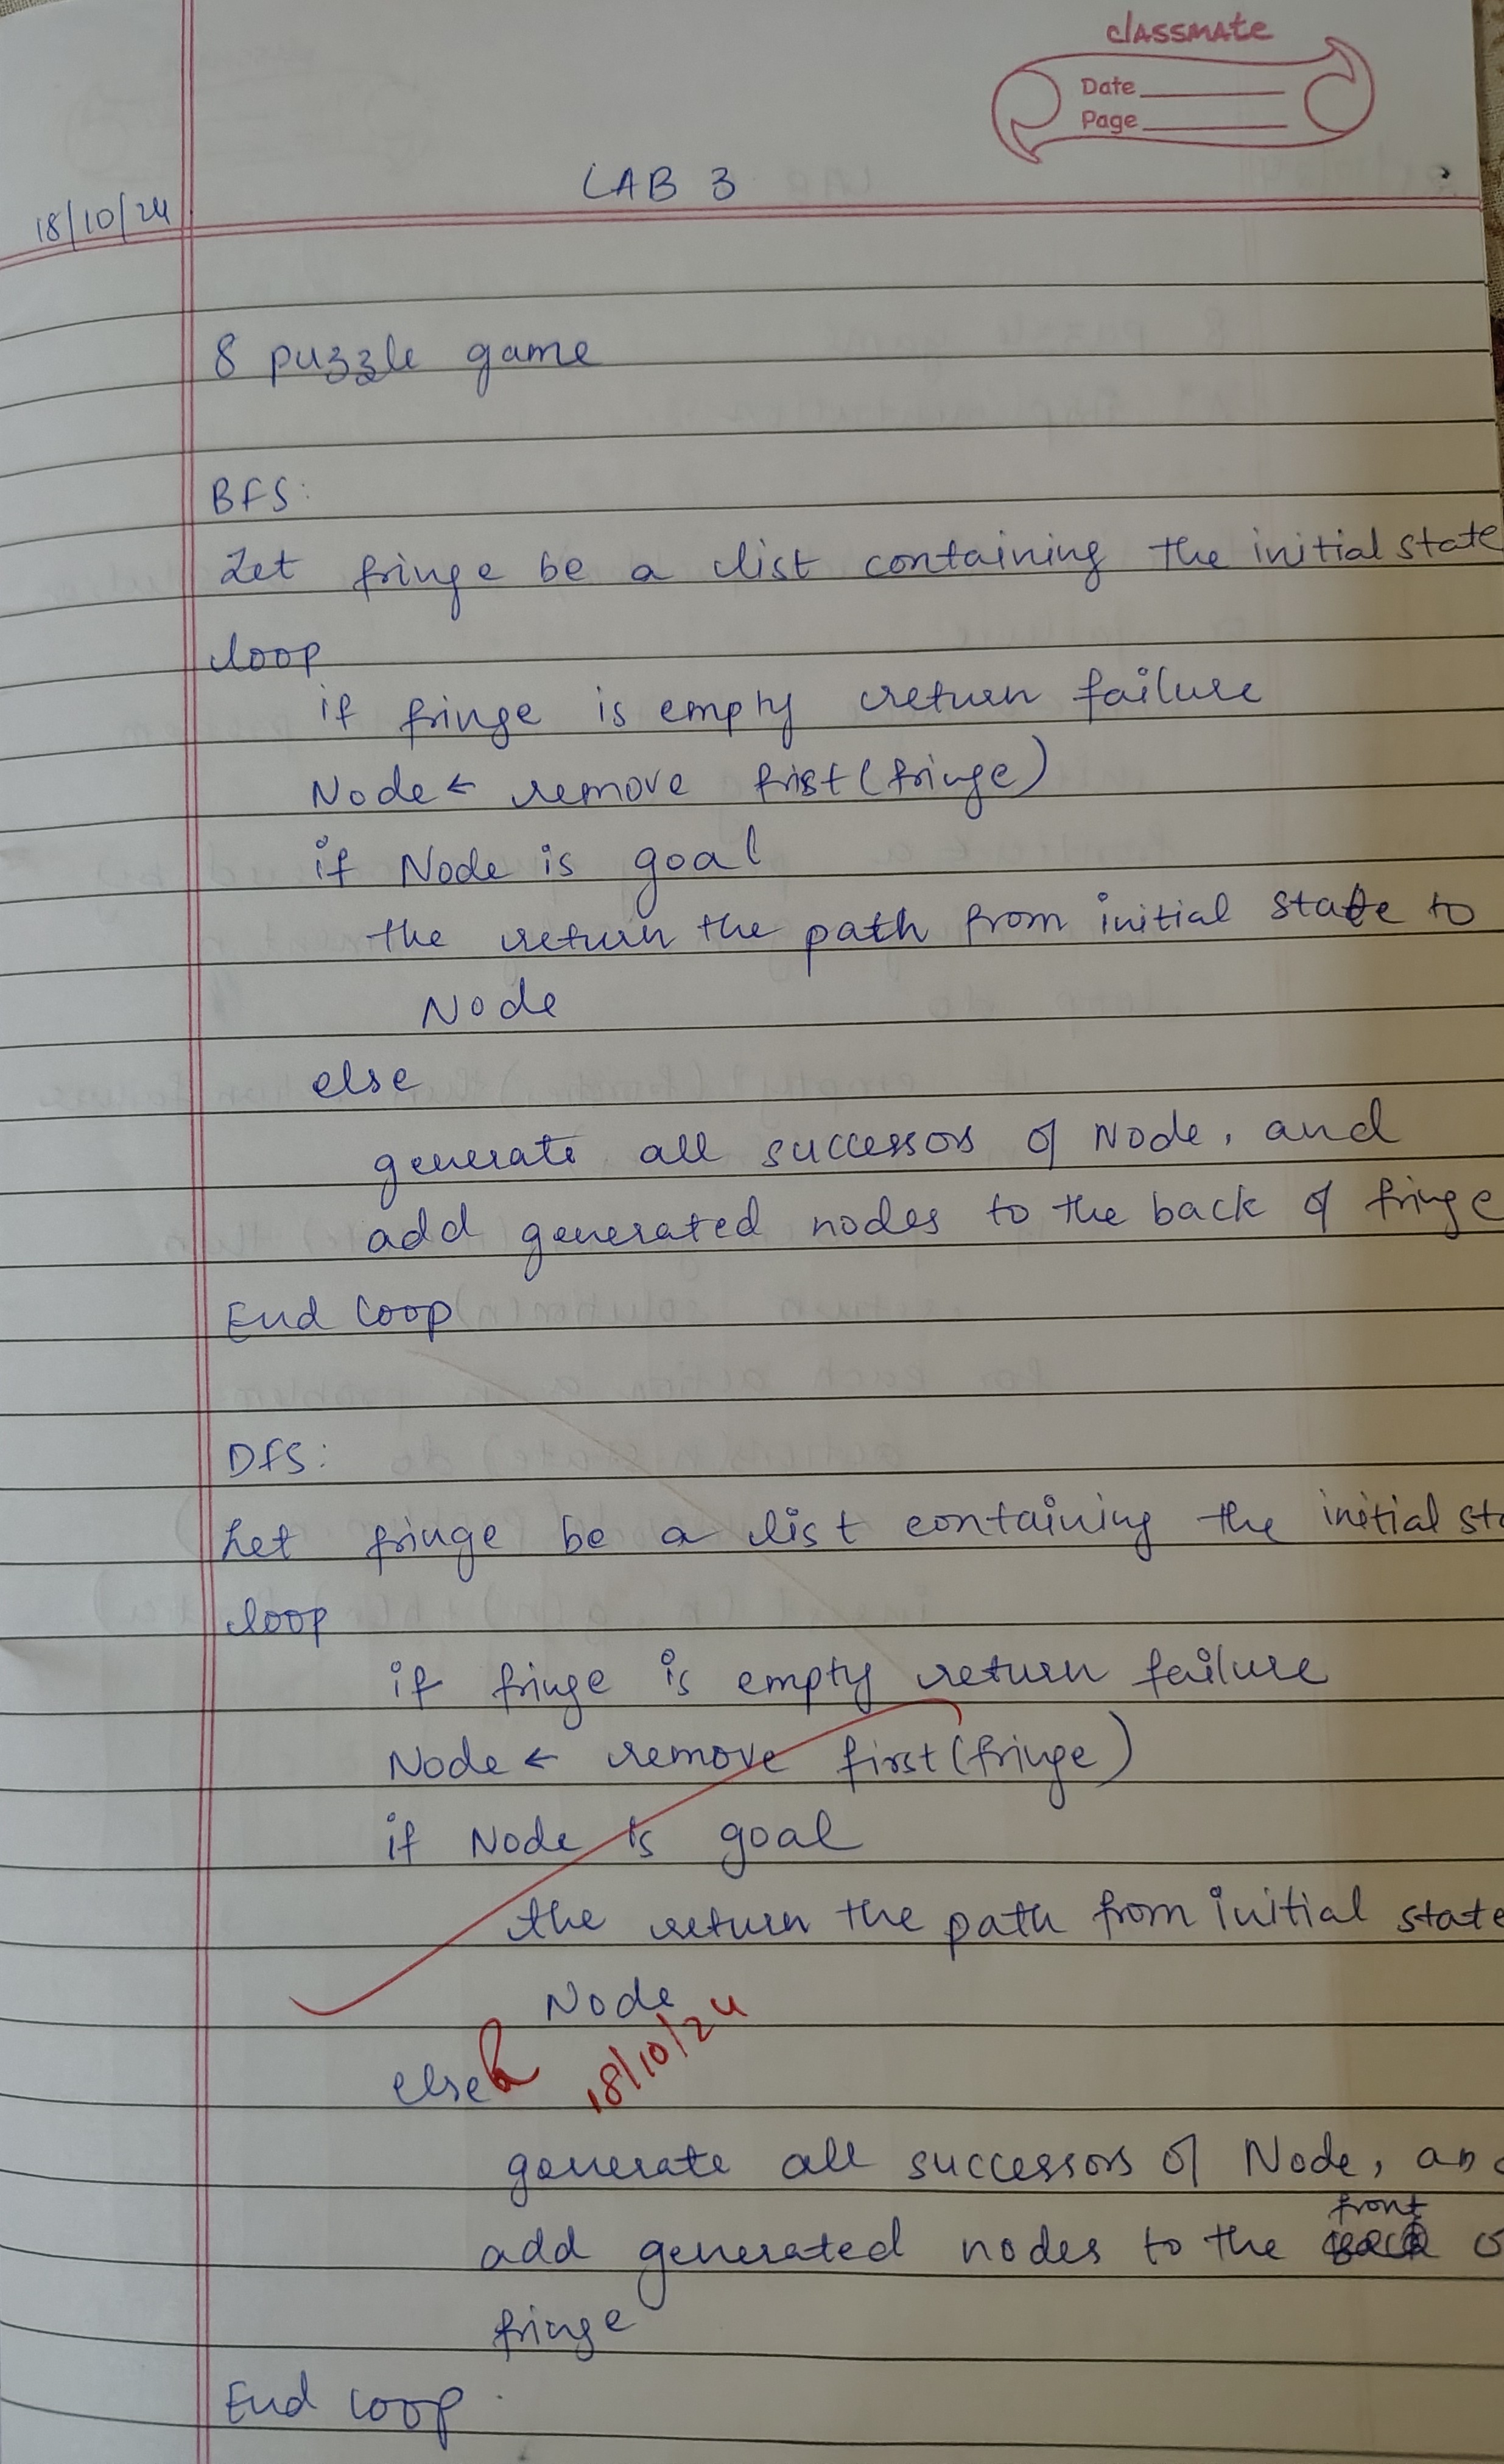 classmate
Date
Page
LAB 3
18/10/24
8 puzzle game
BFS:
Let fringe be a list containing the initial state
loop
if fringe is empty return failure
Node ← remove frist(fringe)
if Node is goal
the return the path from initial state to
Node
else
generate all successors of Node, and
add generated nodes to the back of fringe
End loop
DFS:
Let fringe be a list containing the initial sta
loop
if fringe is empty return failure
Node ← remove first(fringe)
if Node is goal
the return the path from initial state
Node
18/10/24
else
generate all successors of Node, and
front
add generated nodes to the back o
fringe
End loop.